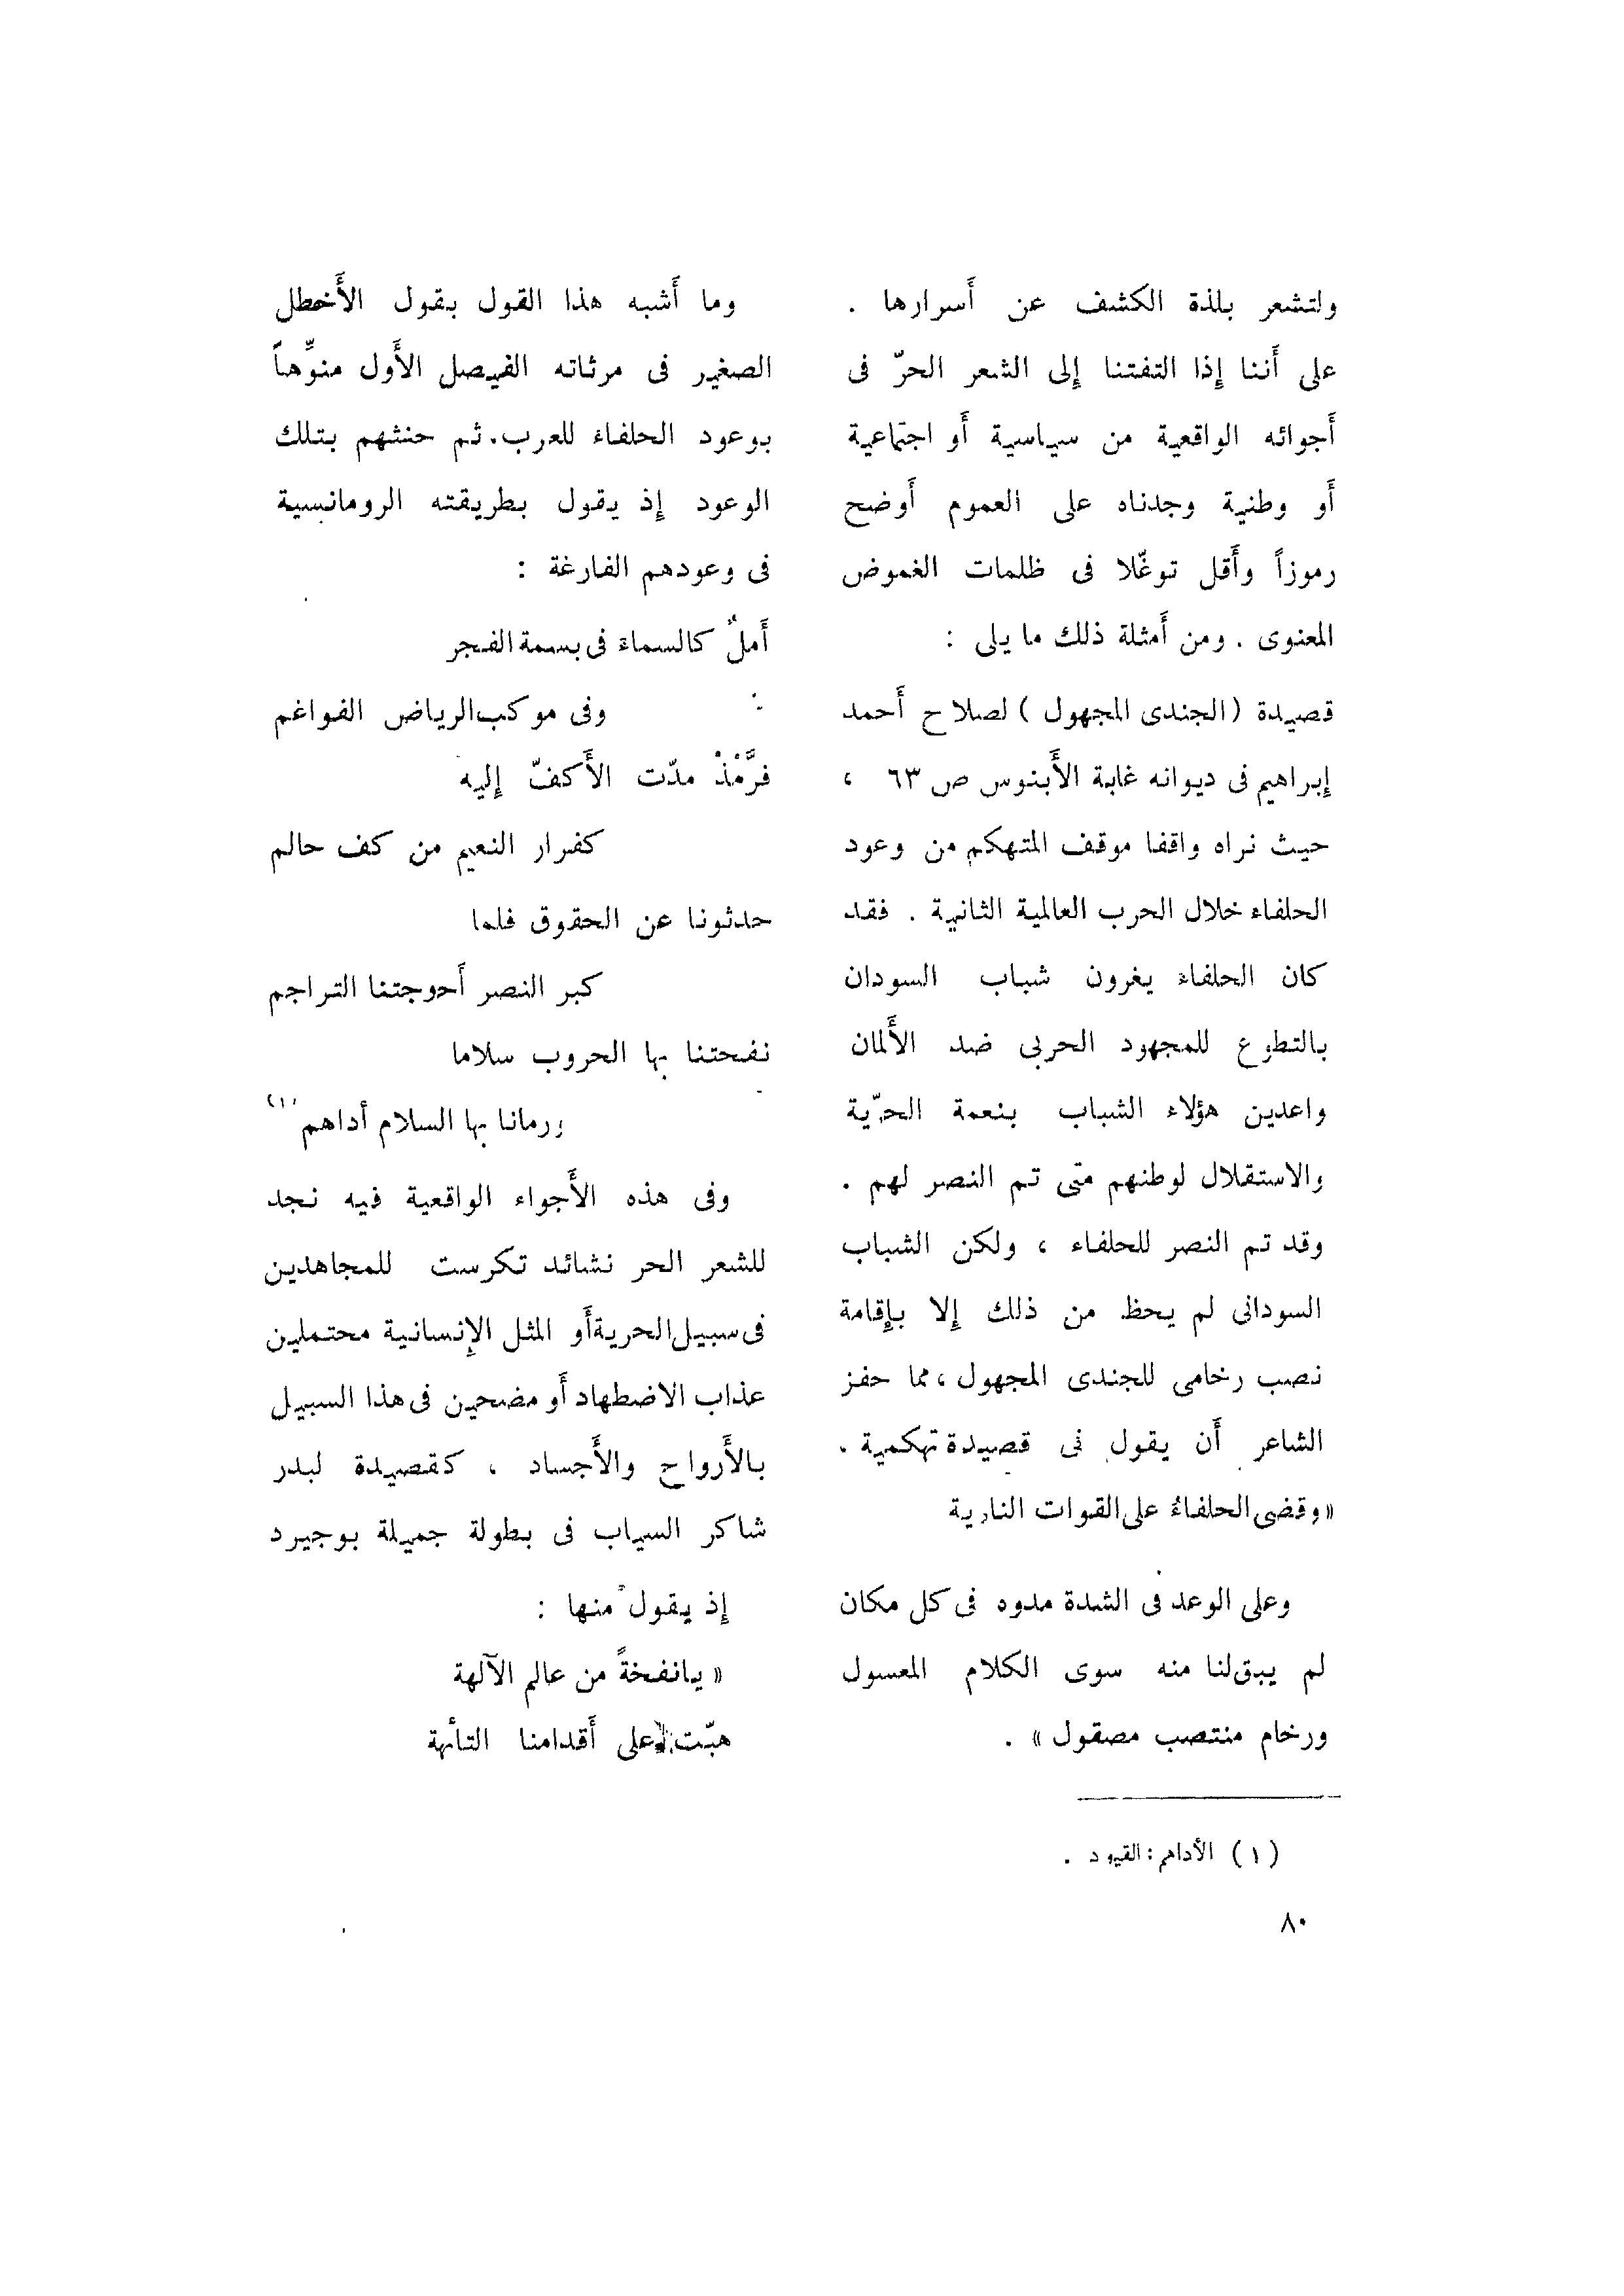 ولتشعر بلذة الكشف عن أَسرارها .
على أَننا إِذا التفتنا إِلى الشعر الحرّ فى
أَجوائه الواقعية من سياسية أَو اجتماعية
أَو وطنية وجدناه على العموم أَوضح
رموزاً وأَقل توغّلا فى ظلمات الغموض
المعنوى . ومن أَمثلة ذلك ما يلى :
قصيدة ( الجندى المجهول ) لصلاح أَحمد
إِبراهيم فى ديوانه غابة الأَبنوس ص ٦٣ ،
حيث نراه واقفا موقف المتهكم من وعود
الحلفاء خلال الحرب العالمية الثانية . فقد
كان الحلفاء يغرون شباب السودان
بالتطوع للمجهود الحربى ضد الأَلمان
واعدين هؤلاء الشباب بنعمة الحرّية
والاستقلال لوطنهم متى تم النصر لهم .
وقد تم النصر للحلفاء ، ولكن الشباب
السودانى لم يحظ من ذلك إِلا بإِقامة
نصب رخامى للجندى المجهول ، مما حفز
الشاعر أَن يقول فى قصيدة تهكمية .
« وقضى الحلفاءُ على القوات النارية
وعلى الوعد فى الشدة مدود فى كل مكان
لم يبق لنا منه سوى الكلام المعسول
ورخام منتصب مصقول » .
وما أَشبه هذا القول بقول الأَخطل
الصغير فى مرثاته الفيصل الأَول منوِّهاً
بوعود الحلفاء للعرب . ثم حنثهم بتلك
الوعود إِذ يقول بطريقته الرومانسية
فى وعودهم الفارغة :
أَملٌ كالسماء فى بسمة الفجر
وفى موكب الرياض الفواغم
فرَّمُذْ مدّت الأَكفّ إِليه
كفرار النعيم من كف حالم
حدثونا عن الحقوق فلما
كبر النصر أَحوجتنا التراجم
نفحتنا بها الحروب سلاما
ورمانا بها السلام أداهم (١)
وفى هذه الأَجواء الواقعية فيه نجد
للشعر الحر نشائد تكرست للمجاهدين
فى سبيل الحرية أَو المثل الإِنسانية محتملين
عذاب الاضطهاد أَو مضحين فى هذا السبيل
بالأَرواح والأَجساد ، كقصيدة لبدر
شاكر السياب فى بطولة جميلة بوجيرد
إِذ يقول منها :
« يانفخةً من عالم الآلهة
هبّت على أَقدامنا التائهة
( ١ ) الأداهم : القيود .
٨٠